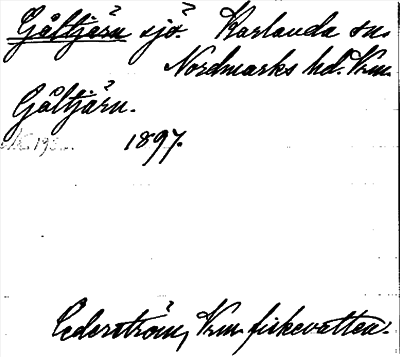 Gåltjärn sjö? Karlanda sn.
Nordmarks hd. Vrm.
Gåltjärn.
1897.
Cederström, Vrm. fiskevatten.